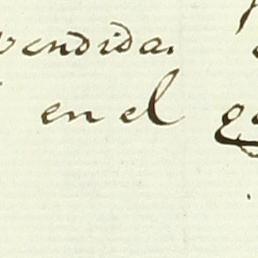 vendida.
en el